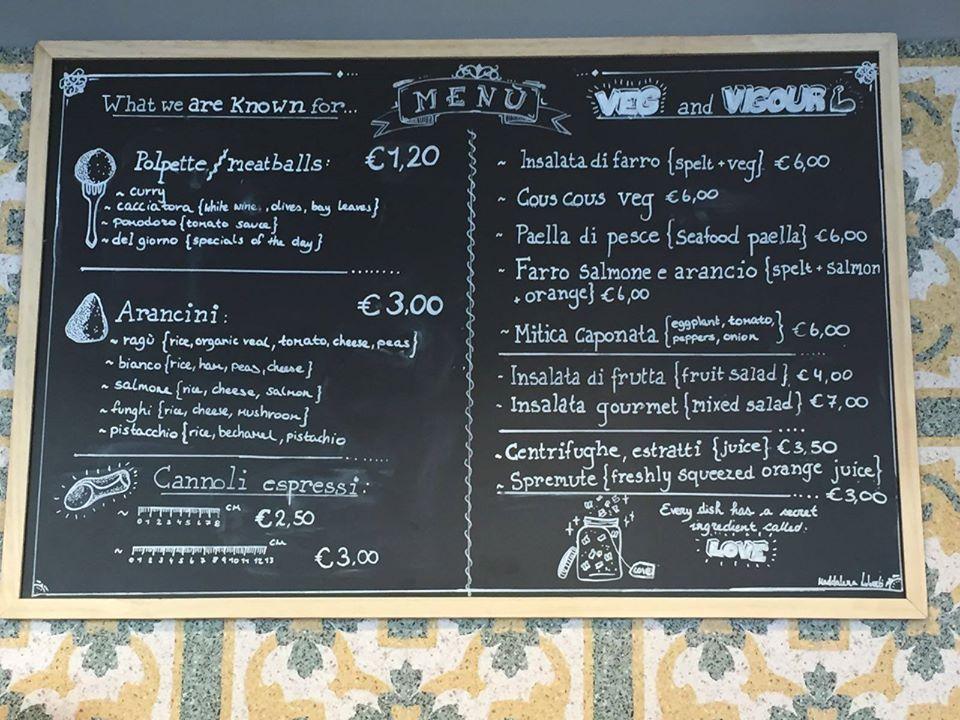 MENÙ
What we are Known for...
Polpette / meatballs: €1,20
~ curry
~ cacciatora {white wine, olives, bay leaves}
~ pomodoro {tomato sauce}
~ del giorno {specials of the day}
Arancini: €3,00
~ ragù {rice, organic veal, tomato, cheese, peas}
~ bianco {rice, ham, peas, cheese}
~ salmone {rice, cheese, salmon}
~ funghi {rice, cheese, mushroom}
~ pistacchio {rice, bechamel, pistachio
Cannoli espressi:
~ 0 1 2 3 4 5 6 7 8 CM €2,50
~ 0 1 2 3 4 5 6 7 8 9 10 11 12 13 CM €3,00
VEG and VIGOUR
~ Insalata di farro {spelt + veg} €6,00
~ Cous cous veg €6,00
~ Paella di pesce {seafood paella} €6,00
~ Farro salmone e arancio {spelt + salmon
+ orange} €6,00
~ Mitica Caponata {eggplant, tomato, €6,00
peppers, onion}
- Insalata di frutta {fruit salad} €4,00
- Insalata gourmet {mixed salad} €7,00
~ Centrifughe, estratti {juice} €3,50
~ Spremute {freshly squeezed orange juice}
€3,00
Every dish has a secret
ingredient called.
LOVE
LOVE
Maddalena